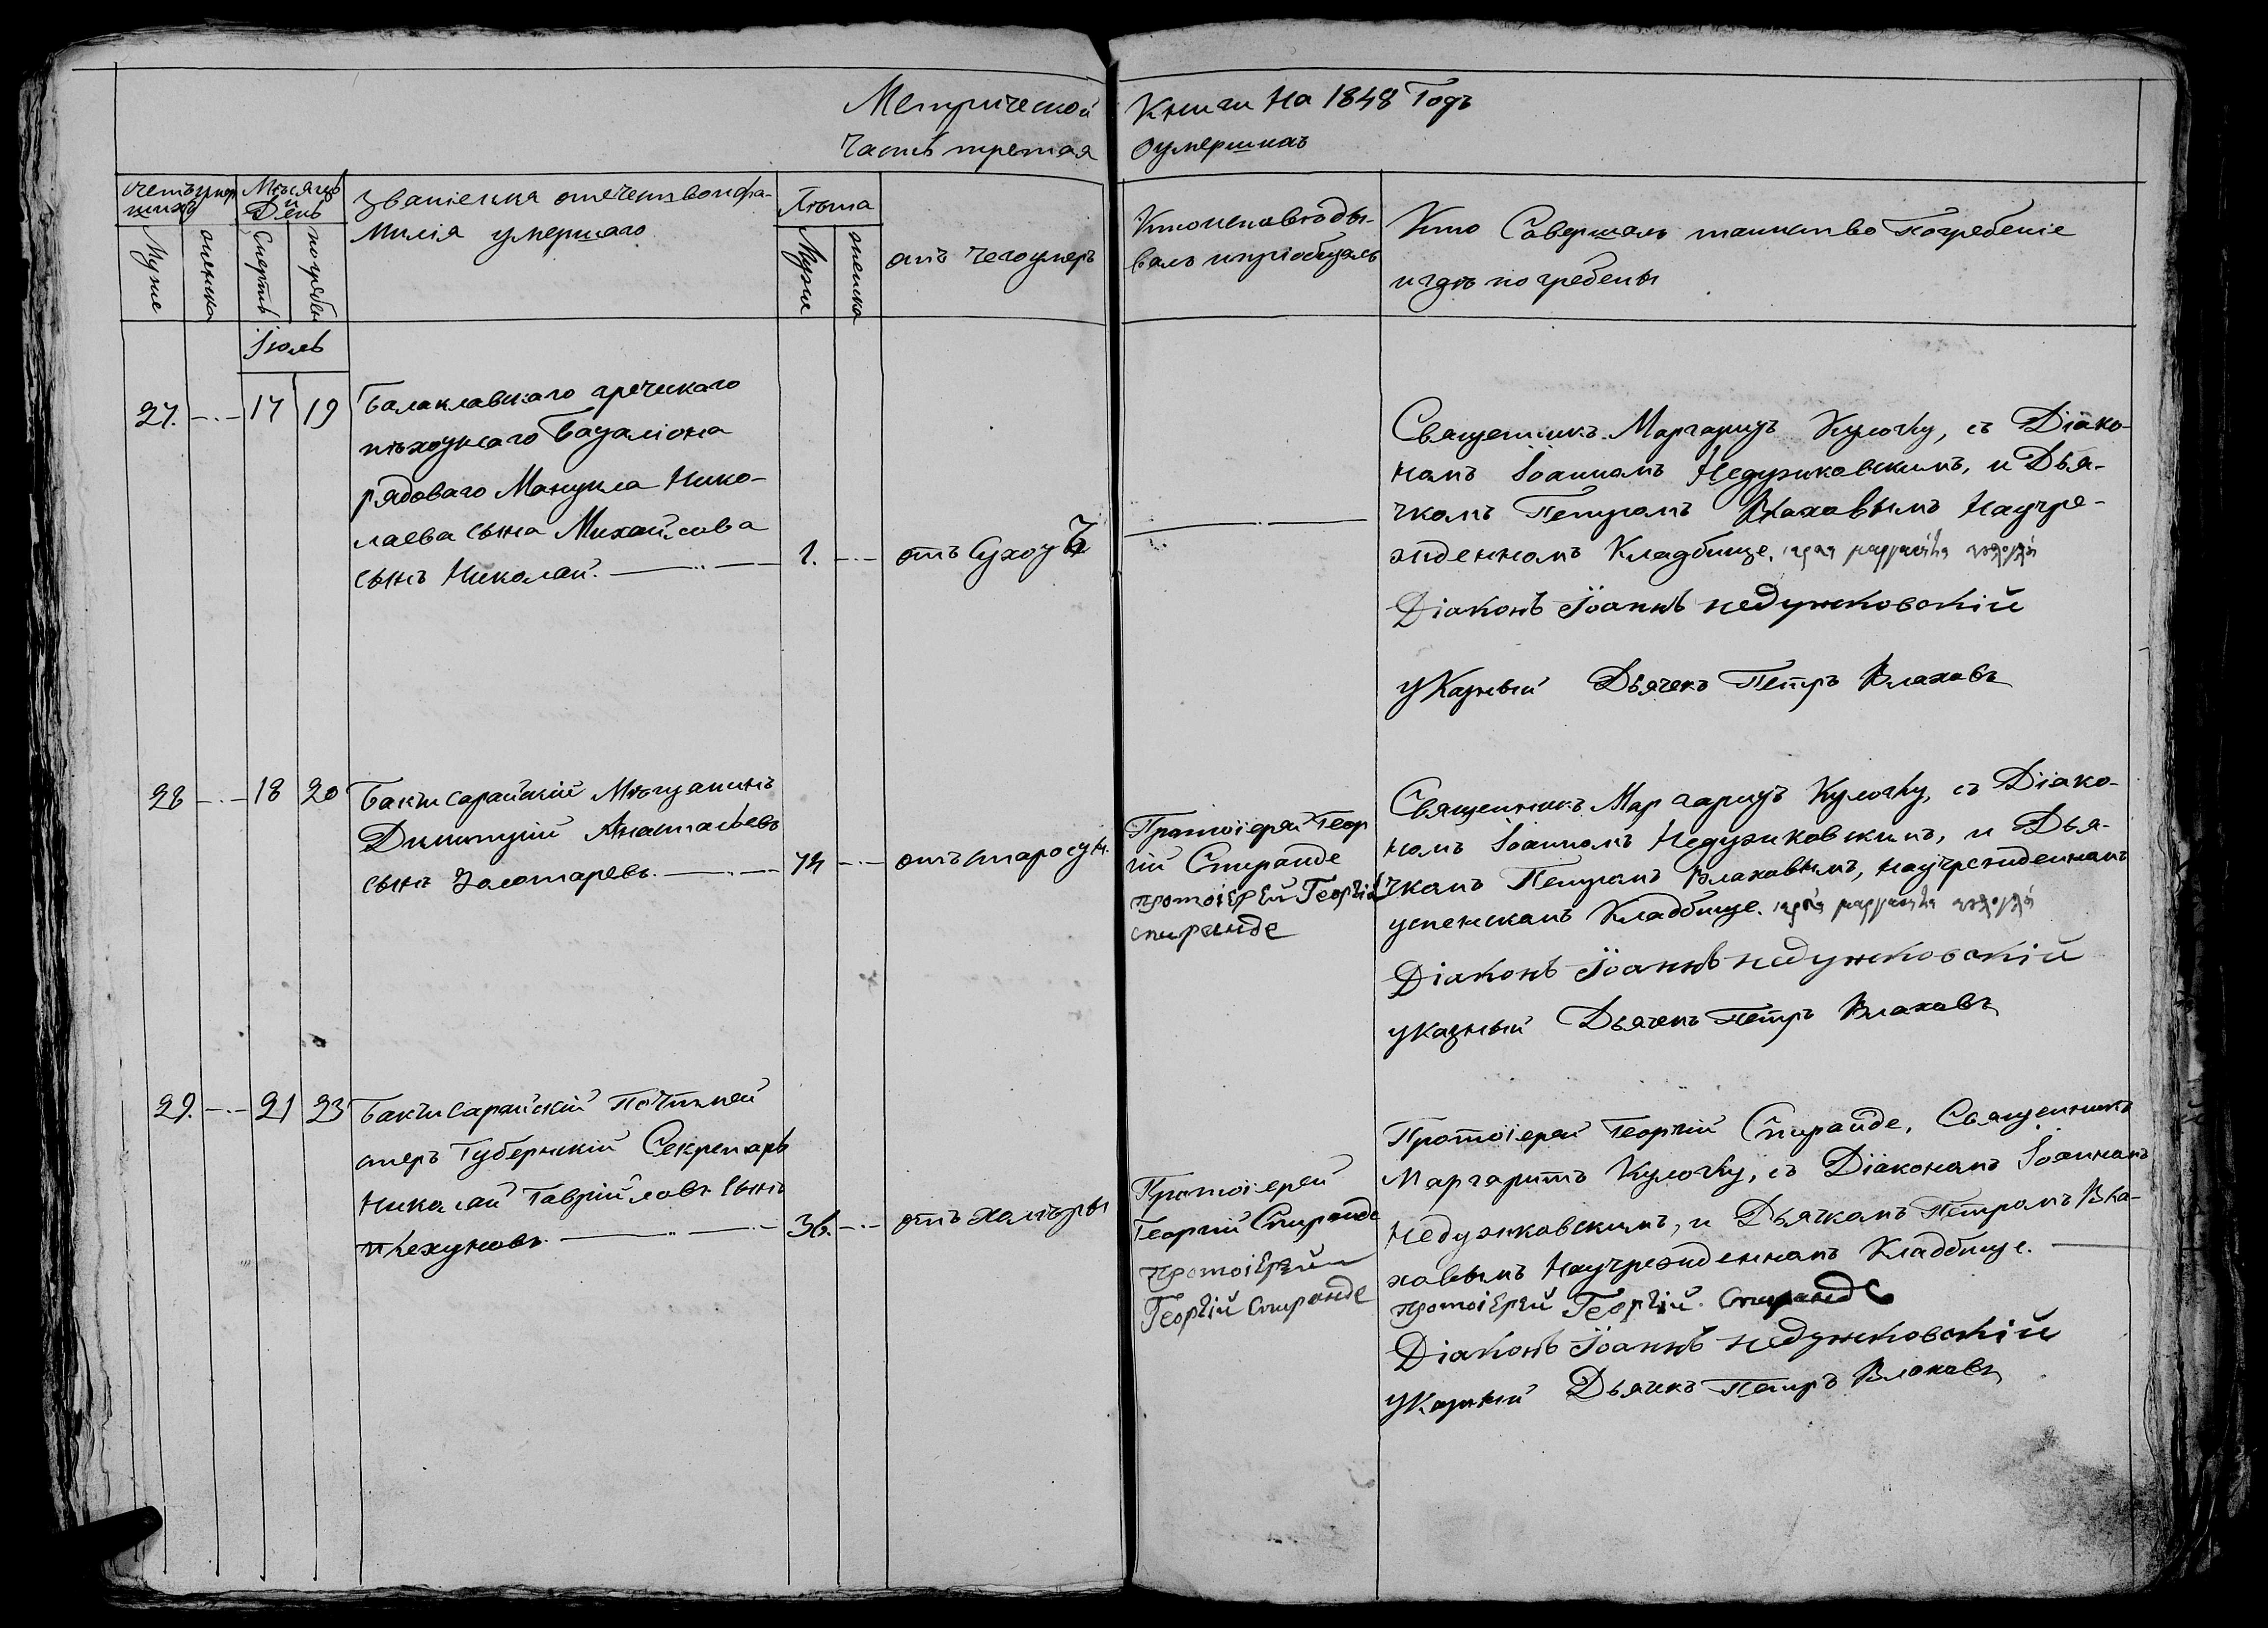 Метрической Книги на 1848 Годъ
Часть третая о умершихъ
Счетъ умершихъ
Мужес
женска
Мѣсяцъ и День
Смерть
погребен
Званіе имя отечетво и фа-
милія умершаго
Лѣта
Мужес
женска
отъ чего умеръ
Кто исповѣды-
валъ и пріобщалъ
Кто Совершалъ таинство Погребеніе
и гдѣ погребены
Іюль
27. 17 19
Балаклавскаго греческаго
пѣхотнаго Баталіона
рядоваго Мануила Нико-
лаева сына Михайлова
сынъ Николай.
1.
отъ Сухоту
Священникъ Маргаритъ Кулочку, съ Діако-
номъ Іоанномъ Недужковскимъ, и Дья-
чкомъ Петромъ Влаховымъ На учре-
жденномъ Кладбище.
Діаконъ Іоаннъ недужковскій
указный Дьячекъ Петръ Влаховъ
28 18 20
Бакчисарайскій Мѣщанинъ
Димитрій Анастасьевъ
сынъ Золотаревъ.
74
отъ старости.
Протоіерей Геор
гій Спиранде
протоіерей Георгій
спиранде
Священникъ Маргаритъ Кулочку, съ Діако-
номъ Іоанномъ Недужковскимъ, и Дья-
чкомъ Петромъ Влаховымъ, на учрежденномъ
успенскомъ Кладбище.
Діаконъ Іоаннъ недужковскій
указный Дьячекъ Петръ Влаховъ
29. 21 23
Бакчисарайскій Почтмей
стеръ Губернскій Секретарь
Николай Гаврійловъ Сынъ
36.
отъ халеры
Протоіерей
Георгій Спиранде
протоіерей
Георгій спиранде
Протоіерей Георгій Спиранде, Священникъ
Маргаритъ Кулочку, съ Діакономъ Іоанномъ
Недужковскимъ, и Дьячкомъ Петромъ Вла-
ховымъ На учрежденномъ Кладбище.
протоіерей Георгій спиранде
Діаконъ Іоаннъ недужковскій
указный Дьячекъ Петръ Влаховъ